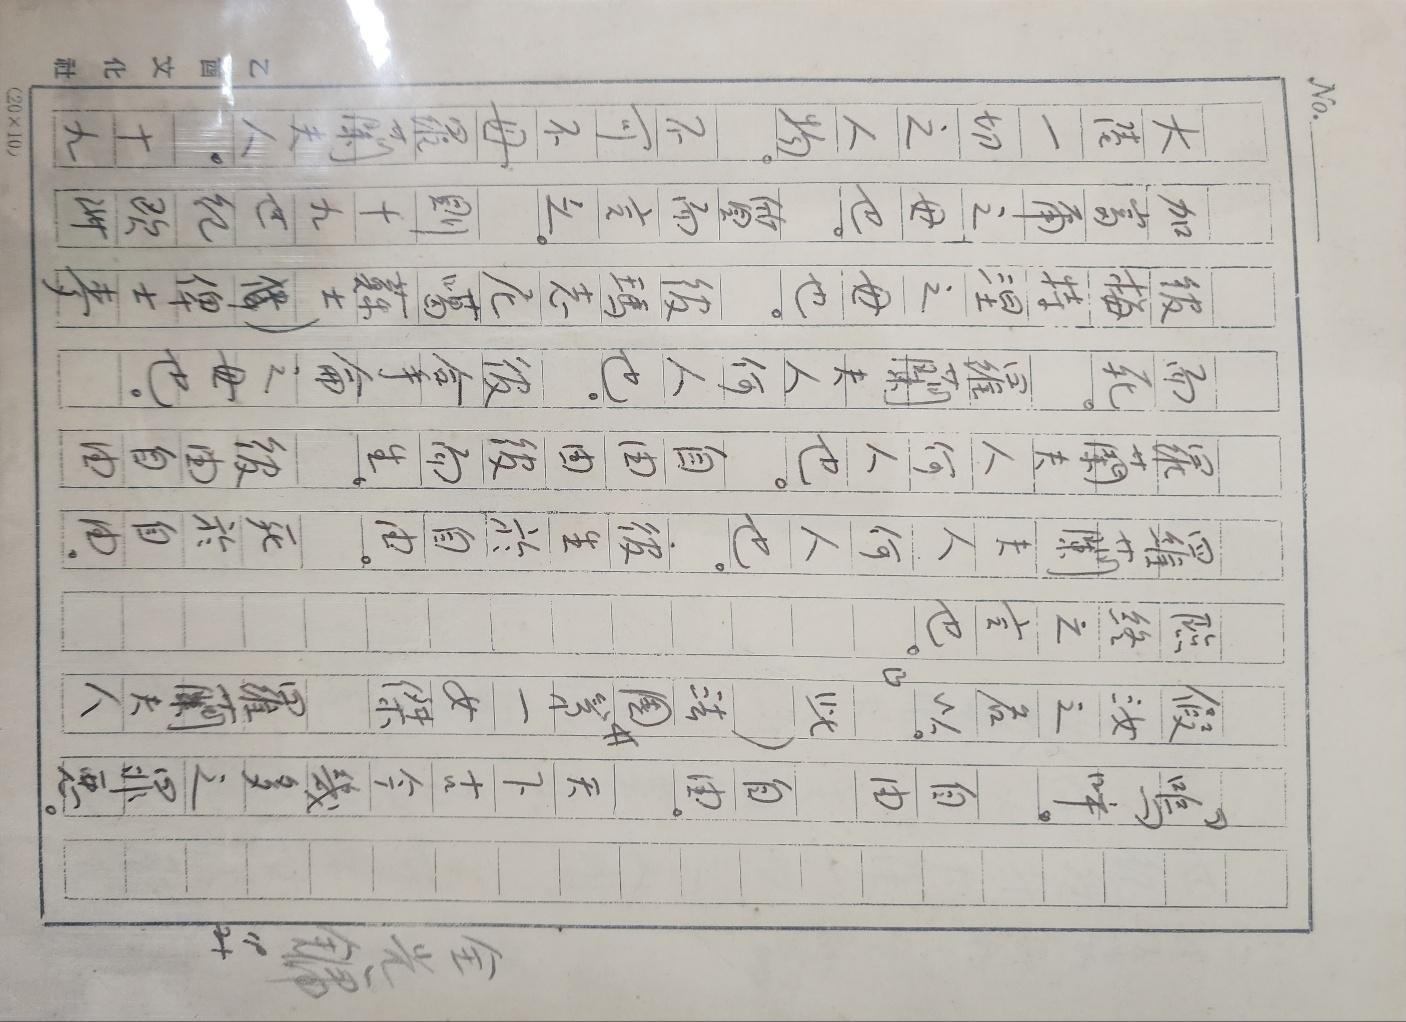 No.
『嗚呼。 自由 自由。 天下古今幾多之罪惡。
假汝之名以。』此(法國第一女傑 羅蘭夫人
臨終之言也。
羅蘭夫人何人也。 彼生於自由。 死於自由。
羅蘭夫人何人也。 自由由彼而生。 彼由自由
而死。 羅蘭夫人何人也。 彼拿侖之母也。
彼梅特涅之母也。 彼瑪志尼噶蘇士(俾士麥
加富爾之母也。 質而言之。 則十九世紀歐洲
大陸一切之人物。 不可不母羅蘭夫人。 十九
乙酉文化社
(20×10)
金光